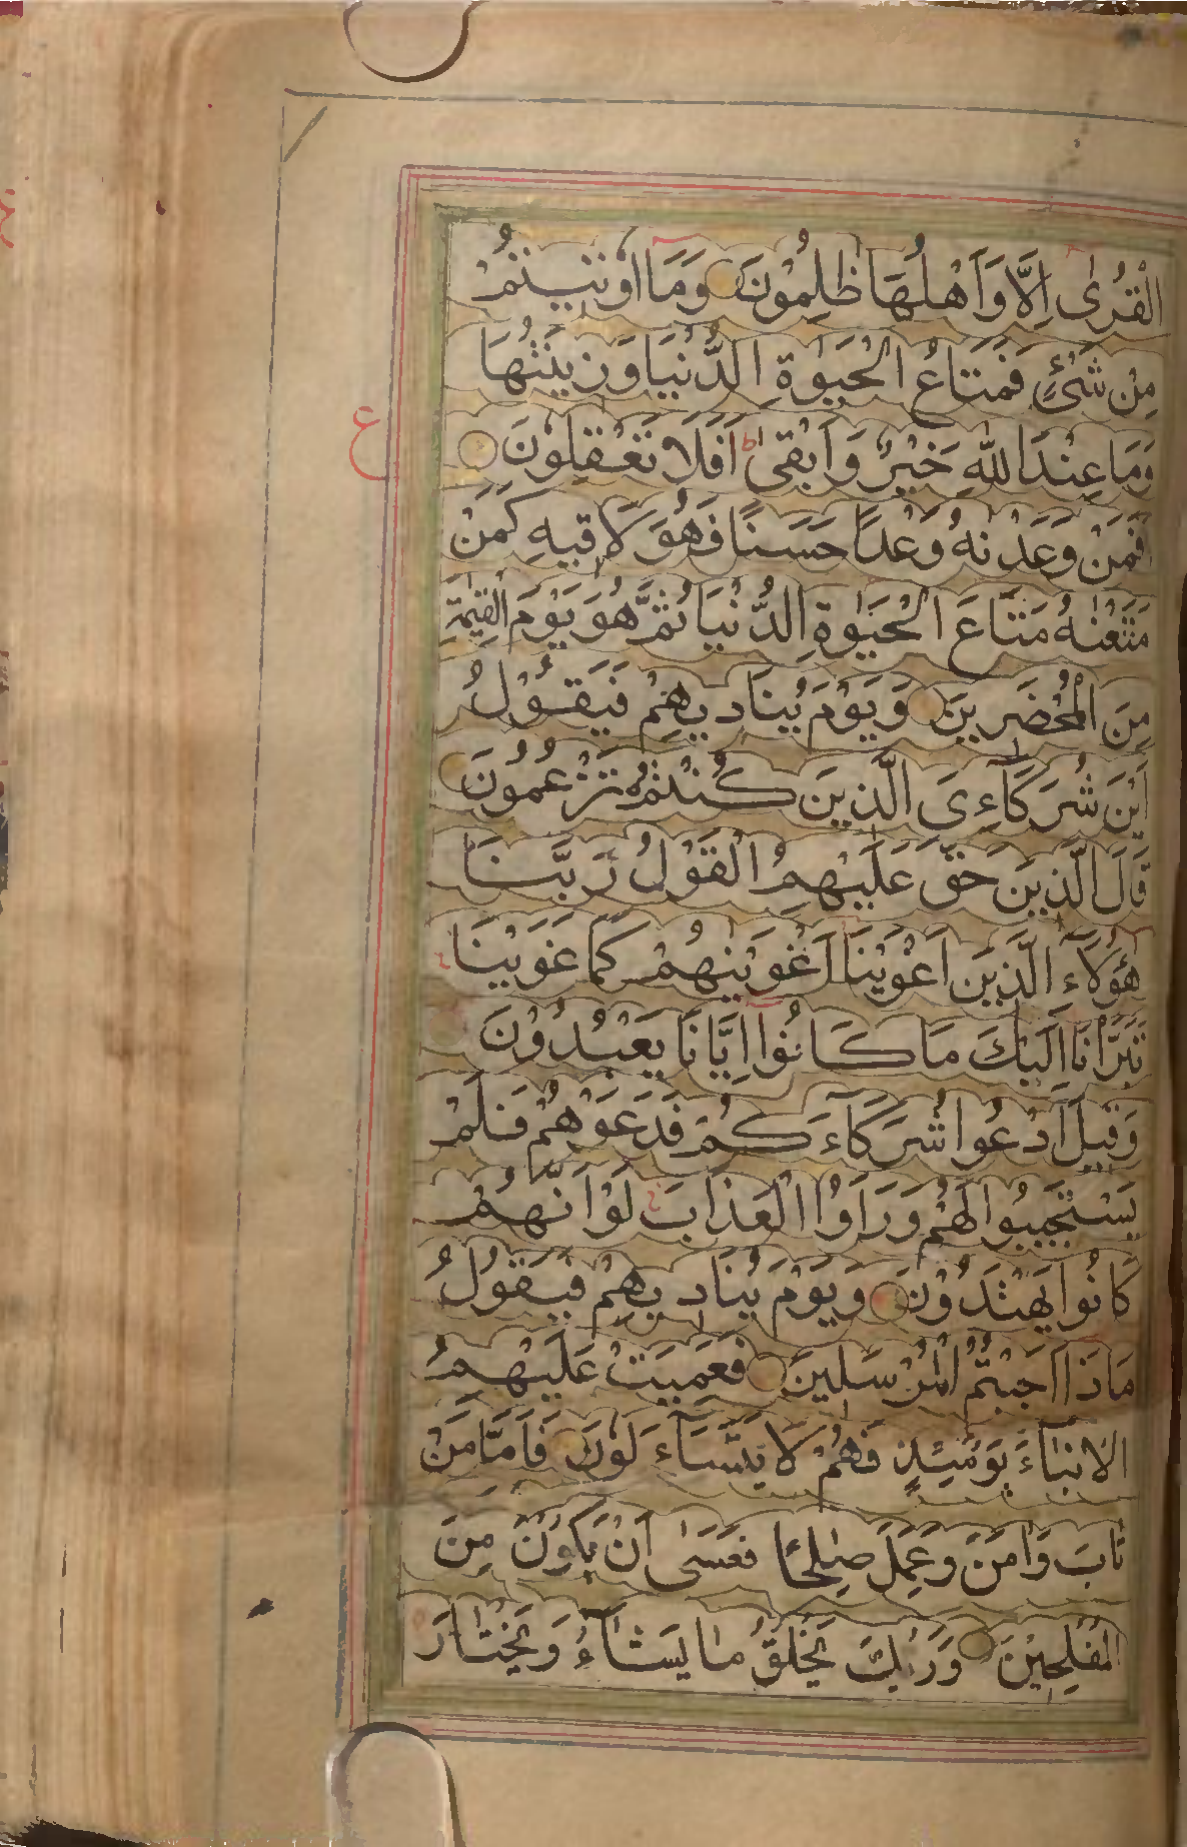 الْقُرٰى اِلَّا وَاَهْلُهَا ظٰلِمُوْنَ وَمَا اُوْتِيْتُمْ
مِنْ شَیْءٍ فَمَتَاعُ الْحَيٰوةِ الدُّنْيَا وَزِيْنَتُهَا
وَمَا عِنْدَ اللّٰهِ خَيْرٌ وَاَبْقٰى ط اَفَلَا تَعْقِلُوْنَ
ع
اَفَمَنْ وَعَدْنٰهُ وَعْدًا حَسَنًا فَهُوَ لَاقِيْهِ كَمَنْ
مَتَّعْنٰهُ مَتَاعَ الْحَيٰوةِ الدُّنْيَا ثُمَّ هُوَ يَوْمَ الْقِيٰمَةِ
مِنَ الْمُحْضَرِيْنَ وَيَوْمَ يُنَادِيْهِمْ فَيَقُوْلُ
اَيْنَ شُرَكَآءِیَ الَّذِيْنَ كُنْتُمْ تَزْعُمُوْنَ
قَالَ الَّذِيْنَ حَقَّ عَلَيْهِمُ الْقَوْلُ رَبَّنَا
هٰۤؤُلَآءِ الَّذِيْنَ اَغْوَيْنَا اَغْوَيْنٰهُمْ كَمَا غَوَيْنَا
تَبَرَّاْنَا اِلَيْكَ مَا كَانُوْا اِيَّانَا يَعْبُدُوْنَ
وَقِيْلَ ادْعُوْا شُرَكَآءَكُمْ فَدَعَوْهُمْ فَلَمْ
يَسْتَجِيْبُوْا لَهُمْ وَرَاَوُا الْعَذَابَ لَوْ اَنَّهُمْ
كَانُوْا يَهْتَدُوْنَ وَيَوْمَ يُنَادِيْهِمْ فَيَقُوْلُ
مَاذَا اَجَبْتُمُ الْمُرْسَلِيْنَ فَعَمِيَتْ عَلَيْهِمُ
الْاَنْبَآءُ يَوْمَئِذٍ فَهُمْ لَا يَتَسَآءَلُوْنَ فَاَمَّا مَنْ
تَابَ وَاٰمَنَ وَعَمِلَ صٰلِحًا فَعَسٰى اَنْ يَكُوْنَ مِنَ
الْمُفْلِحِيْنَ وَرَبُّكَ يَخْلُقُ مَا يَشَآءُ وَيَخْتَارُ